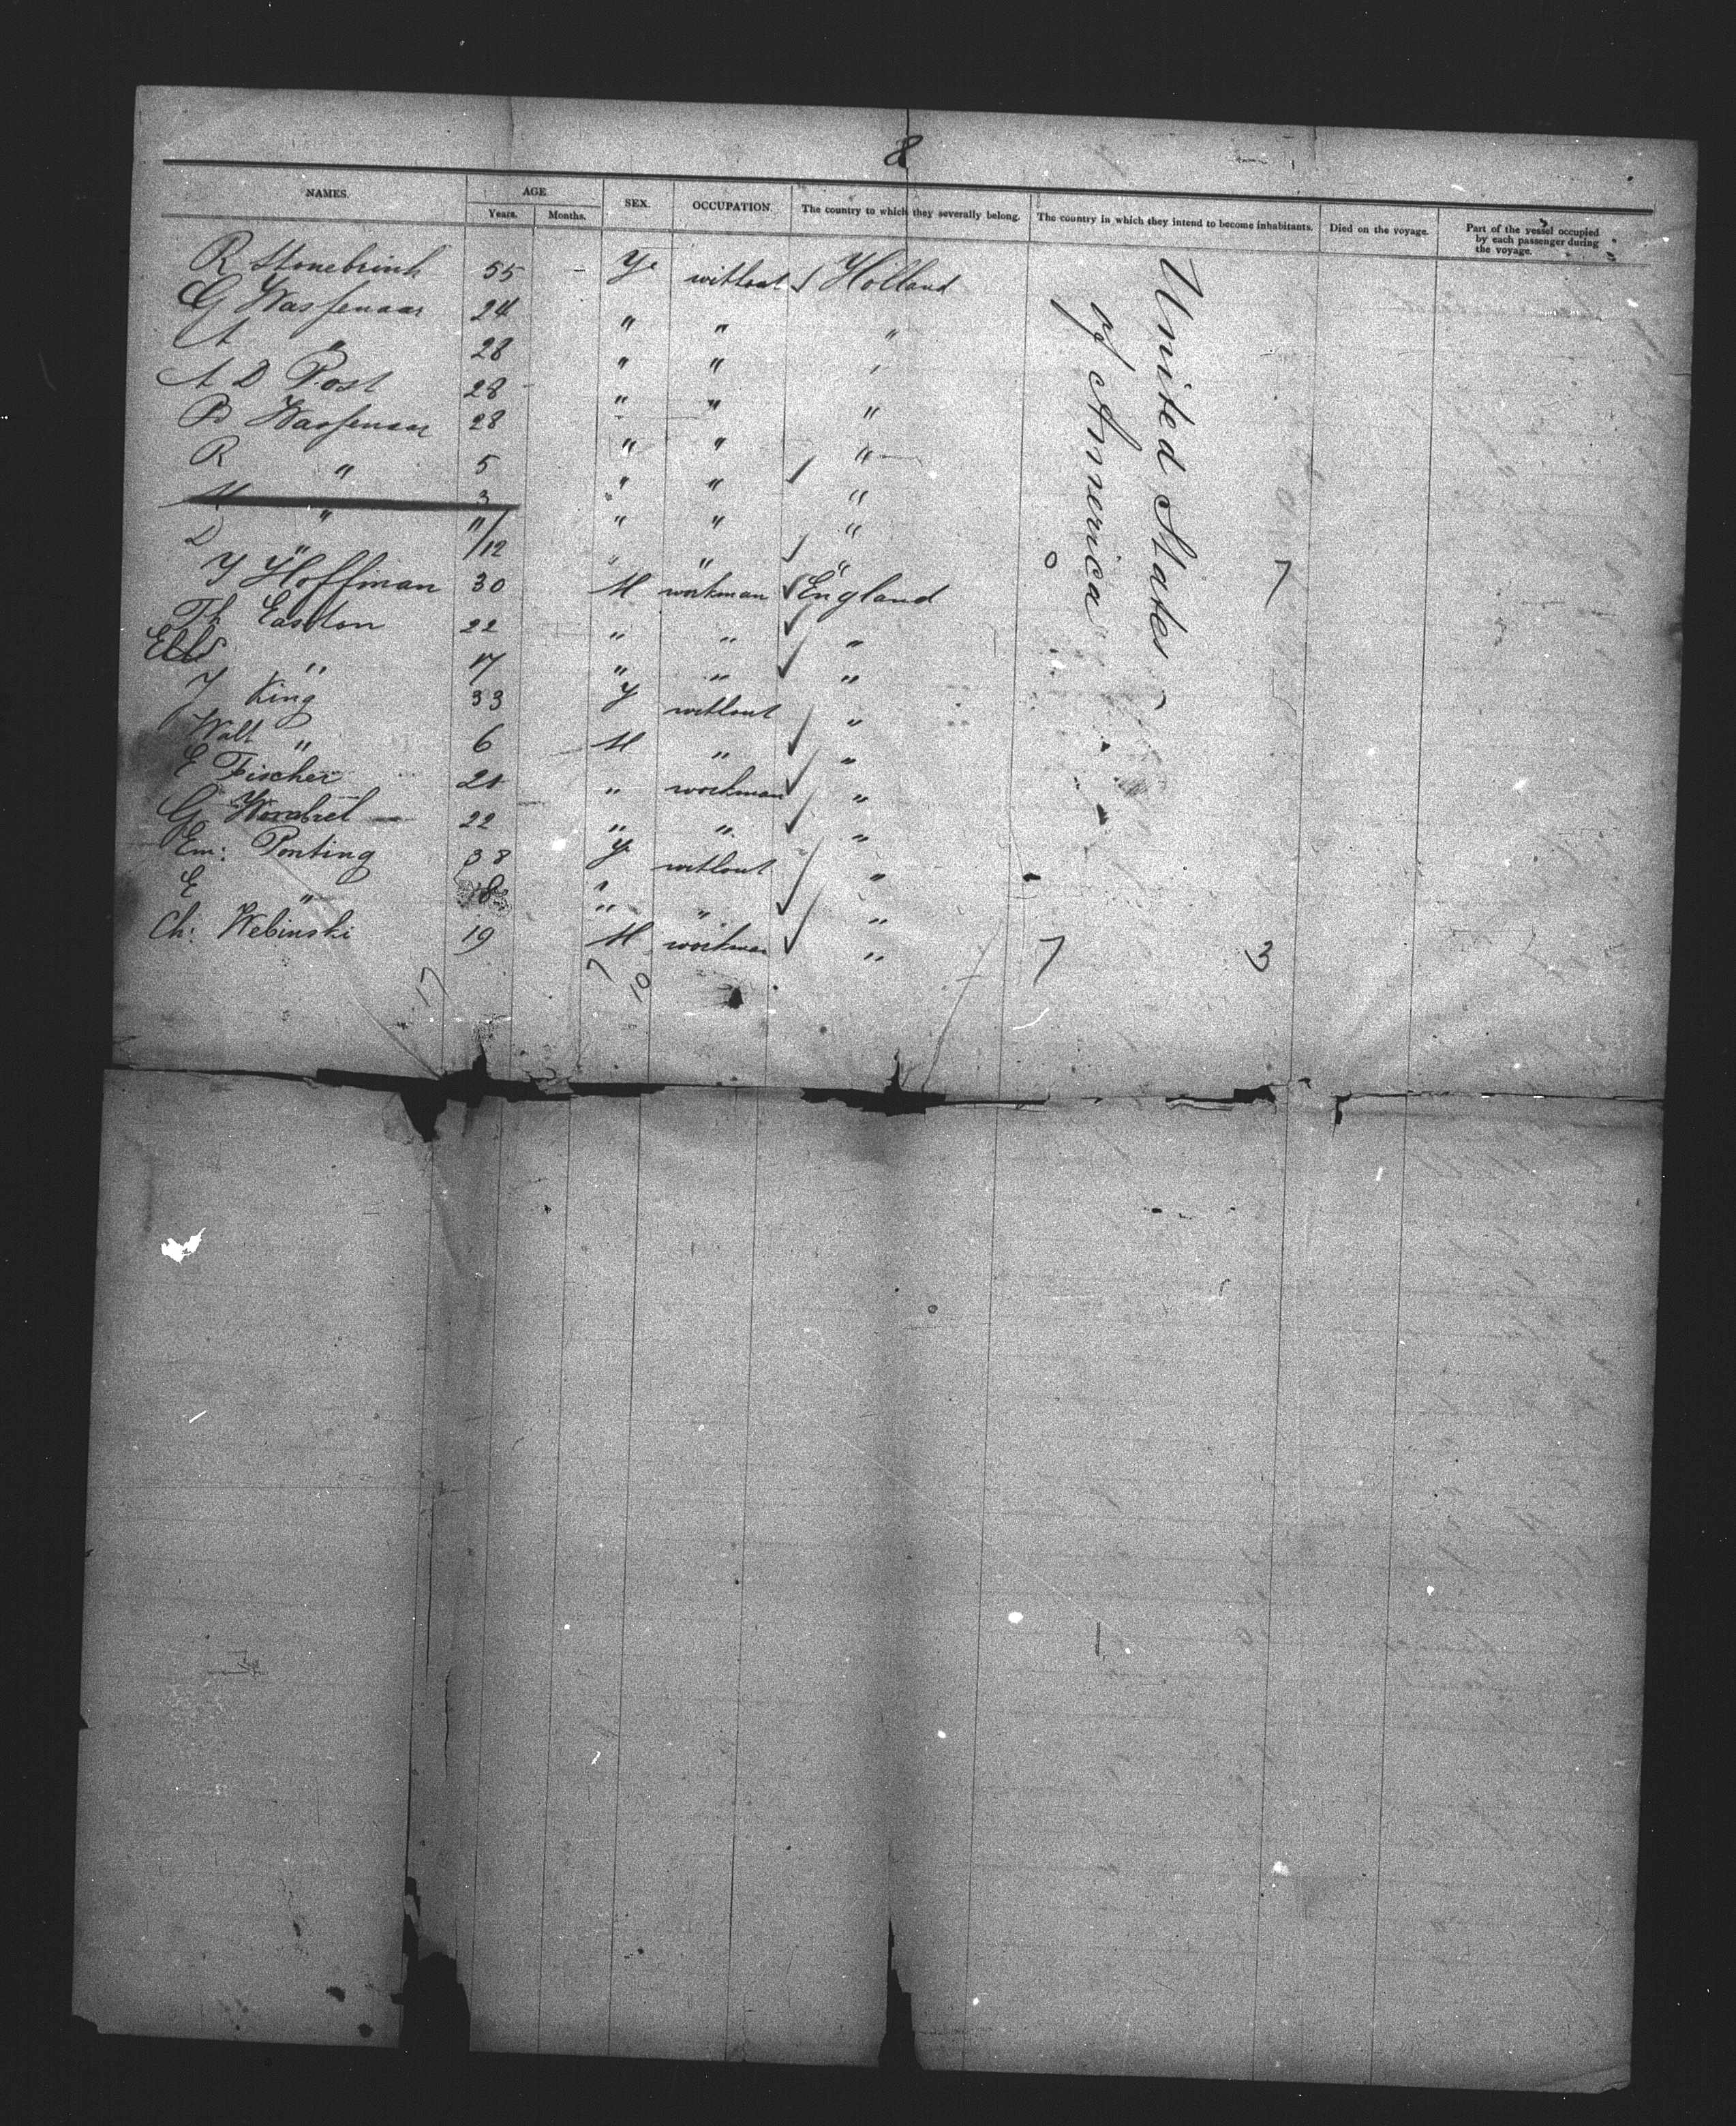 8
NAMES. AGE SEX. OCCUPATION. The country to which they severally belong. The country in which they intend to become inhabitants. Died on the voyage. Part of the vessel occupied by each passenger during the voyage.
Years. Months.
United States
of America
R Stonebrink 55 - Ye without Holland
G Wassenaar 24 " " "
A " 28 " " "
A D Post 28 " " "
B Wassenaar 28 " " "
R " 5 " " "
M " 3 " " "
D " "/12 " " " 0 7
Y Hoffman 30 M workman England
Th Easton 22 " " "
" 17 " " "
J King 33 Y without "
Walt " 6 M " "
E Fischer 21 " workman "
G 22 " " "
Em: Ponting 38 Y without "
E " 18 " " "
Ch: Webinski 19 M workman " 7 3
17 7 10